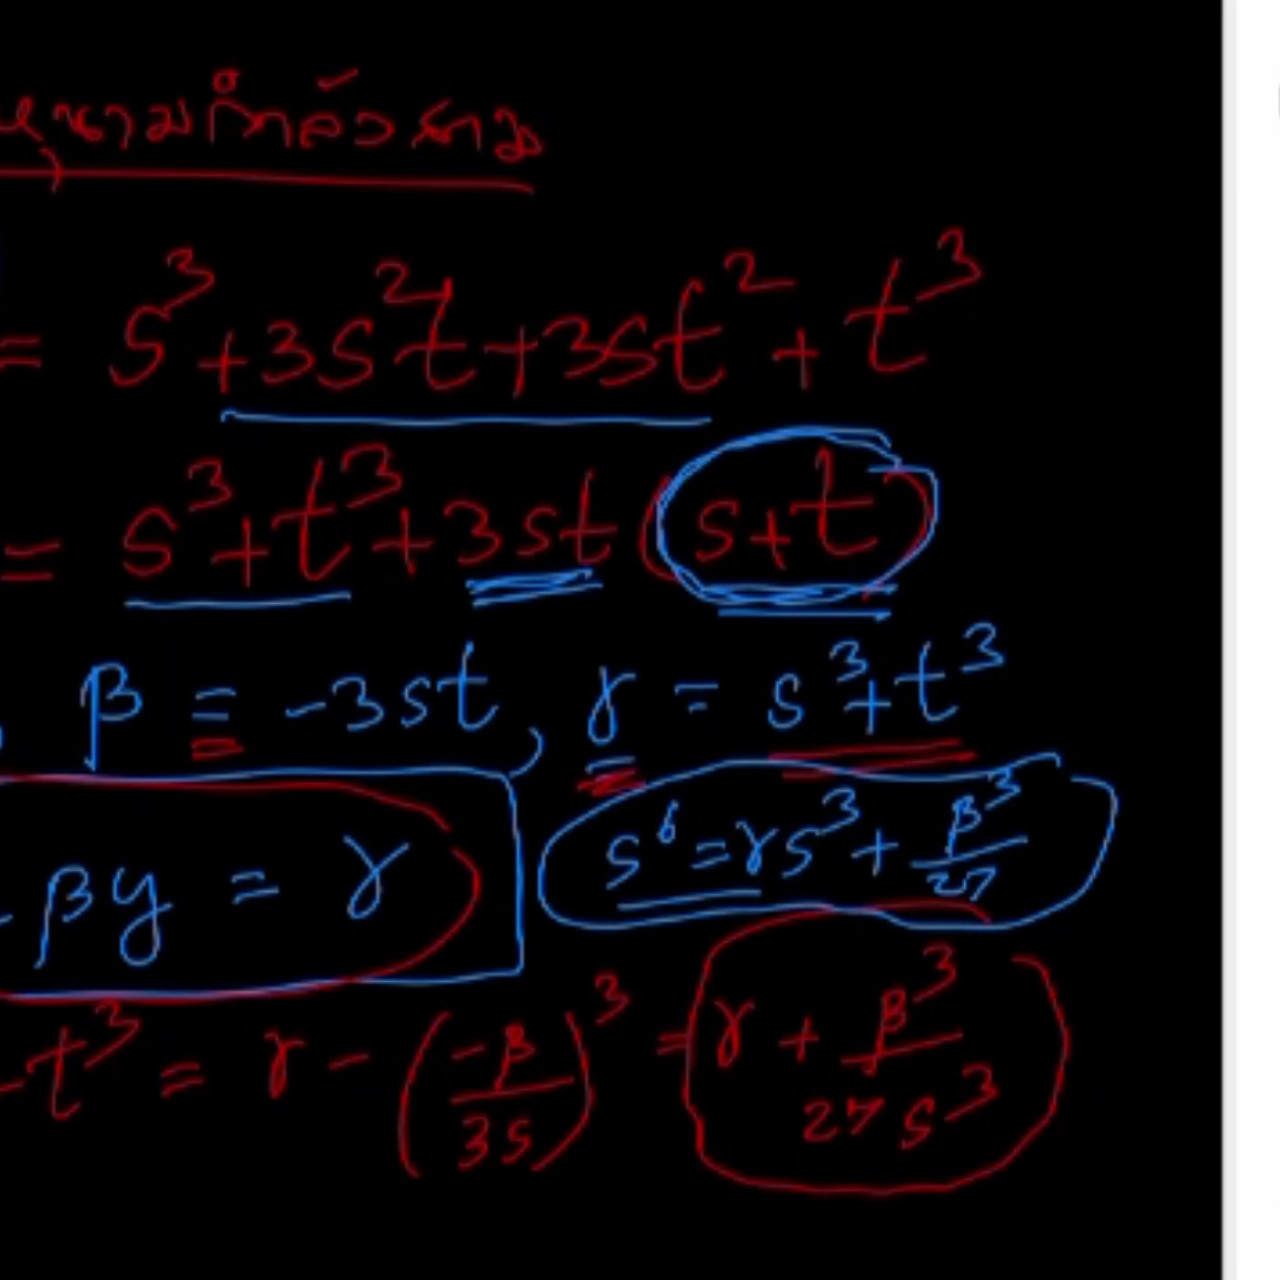 = s³+3s²t+3st²+t³
= s³+t³+3st(s+t)
β = -3st, γ = s³+t³
βy = γ
s⁶=γs³+β³/27
-t³ = γ-(-β/3s)³ = γ+β³/27s³